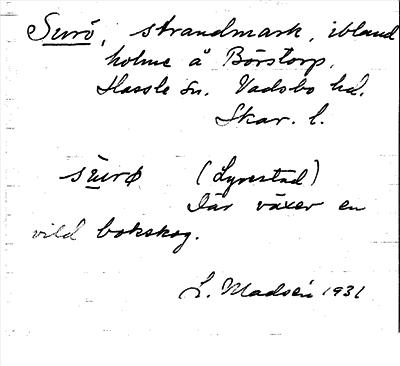 Surö, strandmark, ibland
holme å Börstorp,
Hassle sn. Vadsbo hd.
Skar. l.
sùrø (Lyrestad)
Där växer en
vild bokskog.
L. Madsén 1931